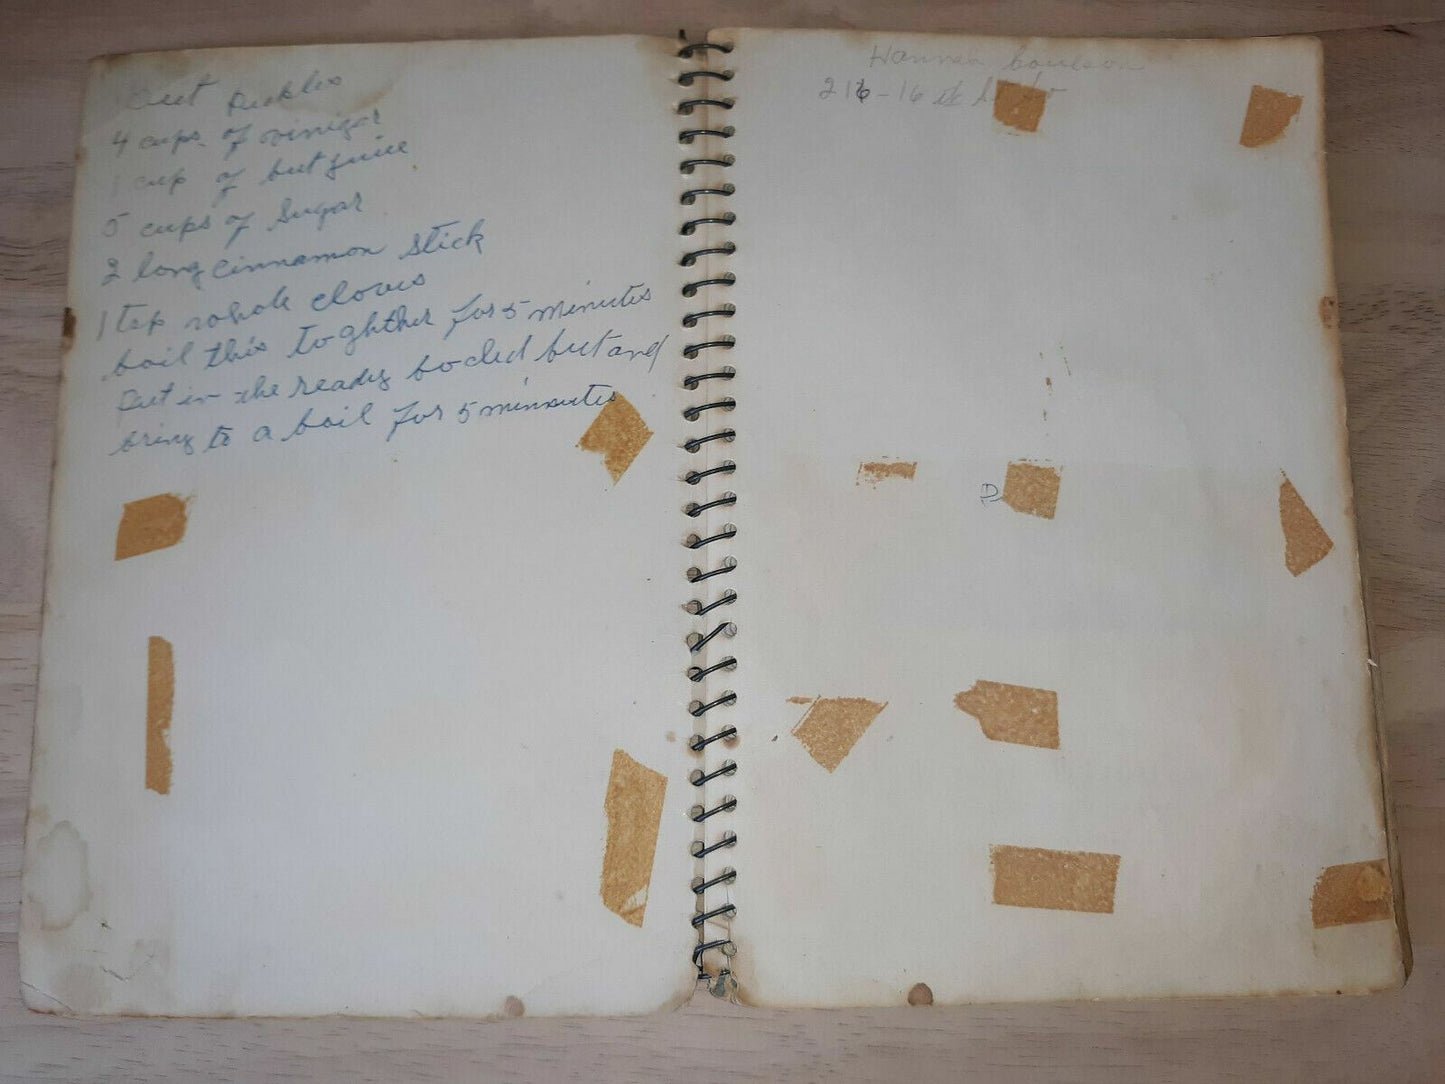 But Pickles
4 cups of vinigar
1 cup of but juice
5 cups of Sugar
2 long cinnamon stick
1 tsp whole cloves
boil this toghther for 5 minutes
Put in the ready boiled but and
bring to a boil for 5 minnutes
Hannah Coulson
216-16 st
P